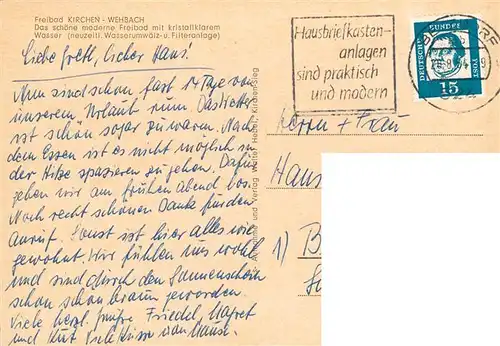 Freibad KIRCHEN - WEHBACH
Das schöne moderne Freibad mit kristallklarem
Wasser (neuzeitl. Wasserumwälz-u. Filteranlage)
Liebe Gretl, lieber Hans!
Nun sind schon fast 14 Tage von
unserem Urlaub rum. Das Wetter
ist schön sogar zu warm. Nach
dem Essen ist es nicht möglich in
der Hitze spazieren zu gehen. Dafür
gehen wir am frühen Abend los.
Noch recht schönen Dank für den
Anruf. Sonst ist hier alles wie
gewohnt. Wir fühlen uns wohl
und sind durch den Sonnenschein
schon schön braun geworden.
Viele herzl. Grüße Friedel,
und Kurt
Aufnahme und Verlag Walter Hebel, Kirchen-Sieg
Hausbriefkasten-
anlagen
sind praktisch
und modern
DEUTSCHE BUNDESPOST
15
Herrn + Frau
Hans
1) B